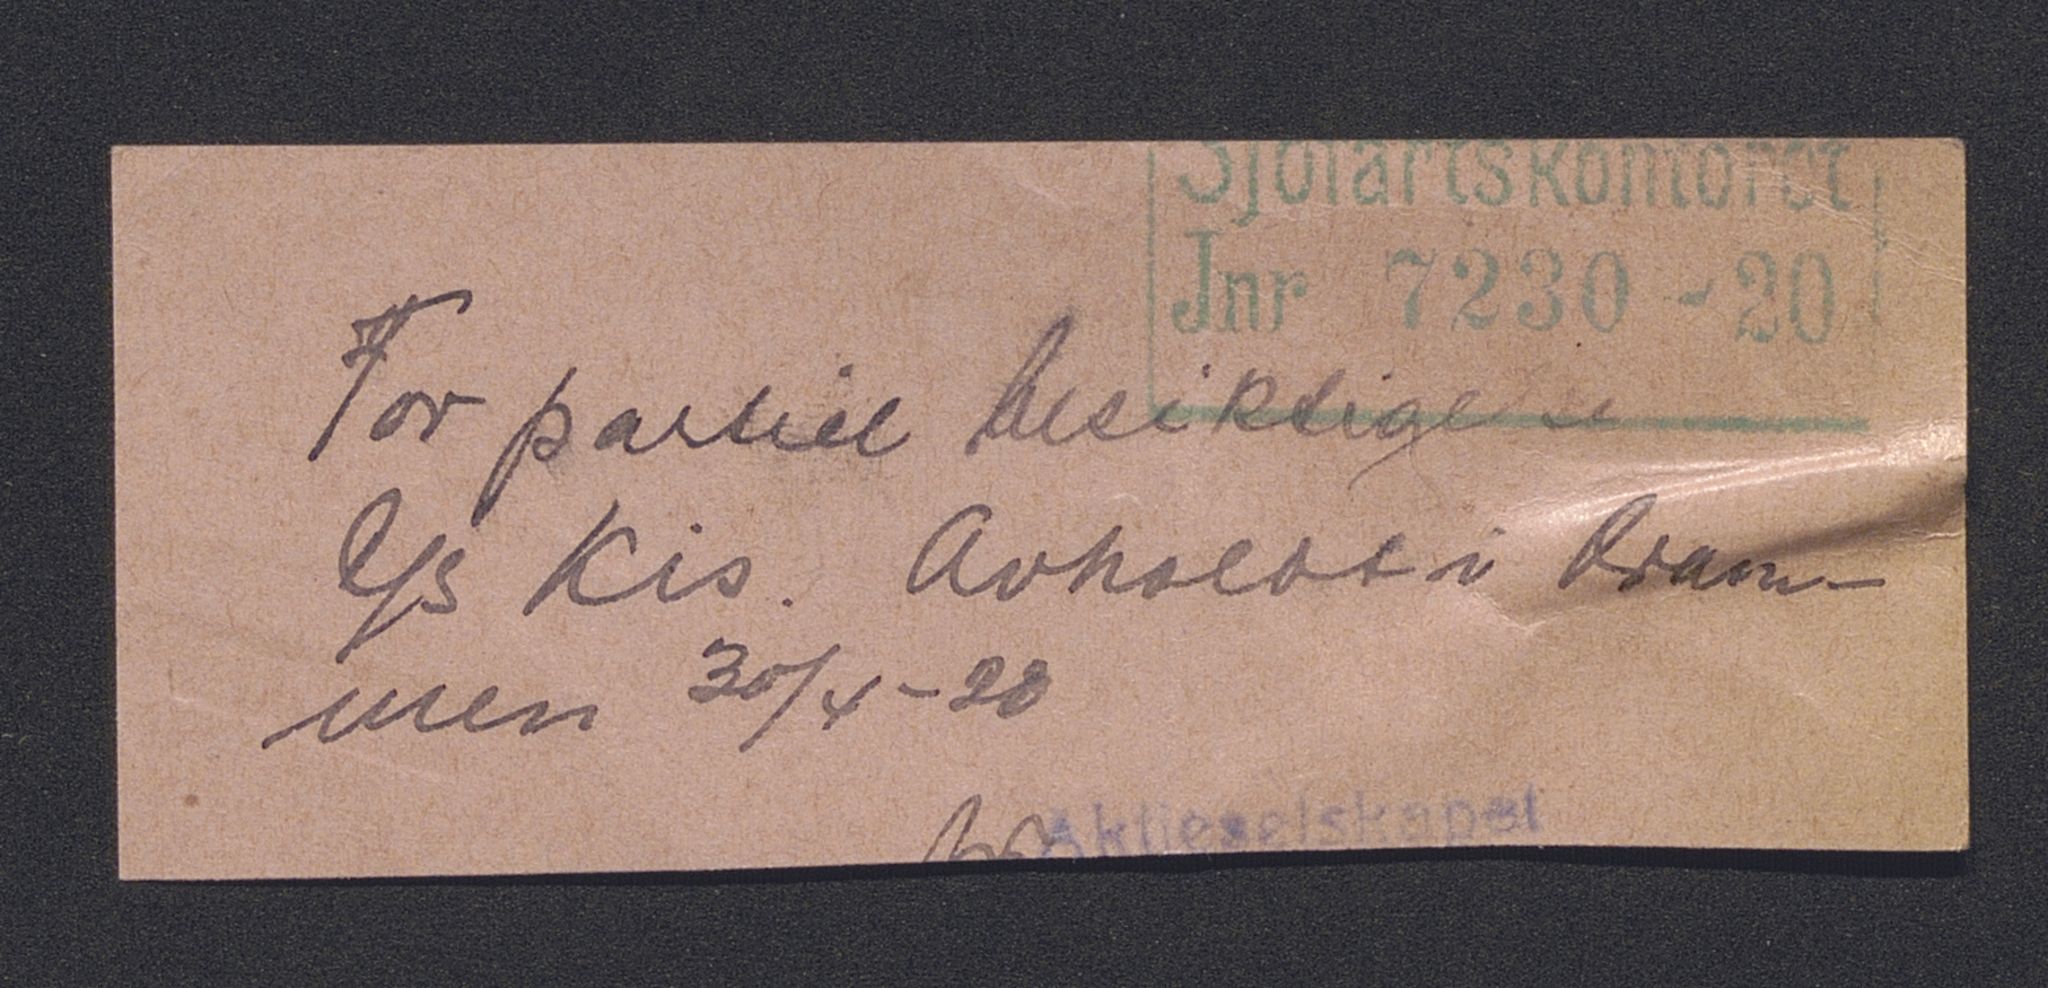 Sjøfartskontoret
Jnr 7230 - 20
For partiel besiktigelse
Kis. Avholdt i Dram-
men 30/4-20
Aktieselskapet